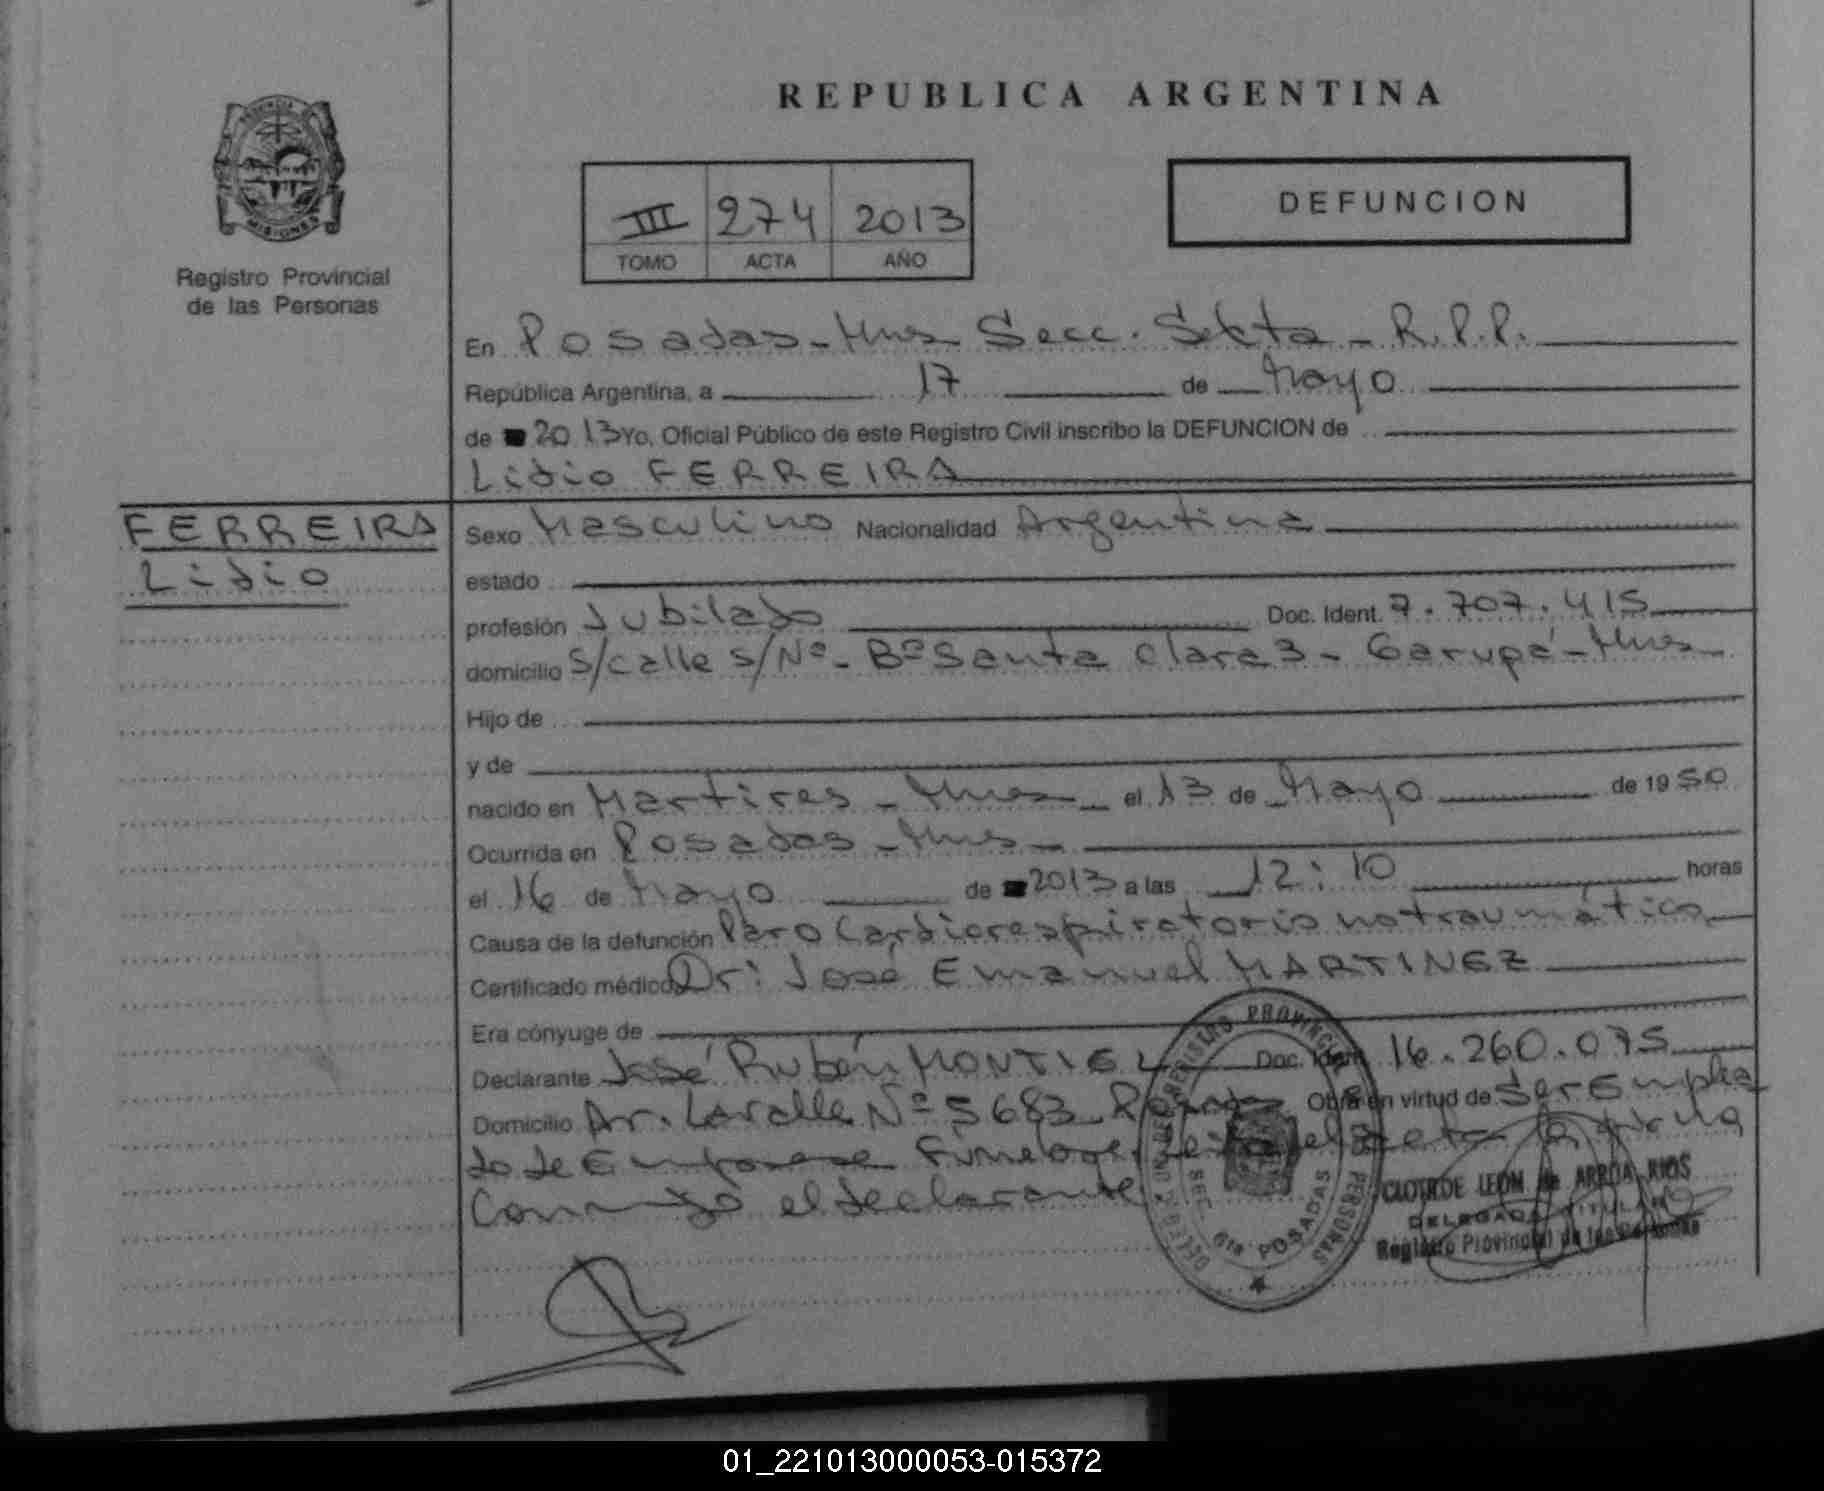 REPUBLICA ARGENTINA
PROVINCIA
MISIONES
Registro Provincial
de las Personas
III 274 2013
TOMO ACTA AÑO
DEFUNCION
En Posadas - Mnes Secc. Sexta - R.P.P.
República Argentina, a 17 de Mayo
de 2013 Yo, Oficial Público de este Registro Civil inscribo la DEFUNCION de
Lidio FERREIRA
FERREIRA
Lidio
Sexo Masculino Nacionalidad Argentina
estado
profesión Jubilado Doc. Ident. 7.707.415
domicilio S/calle S/Nº - Bº Santa Clara 3 - Garupá - Mnes
Hijo de
y de
nacido en Martires - Mnes - el 13 de Mayo de 1950
Ocurrida en Posadas - Mnes -
el 16 de Mayo de 2013 a las 12:10 horas
Causa de la defunción Paro Cardiorespiratorio no traumático
Certificado médico Dr: José Emanuel MARTINEZ
Era cónyuge de
Declarante José Rubén MONTIEL Doc. Ident. 16.260.075
Domicilio Av. Lavalle Nº 5683 Obra en virtud de Ser Emplea
do de Fúnebre el
Conmigo el declarante
REGISTRO PROVINCIAL DE LAS PERSONAS
SEC. 6ta POSADAS
CLOTILDE LEON de ARRUA RIOS
DELEGADA TITULAR
Registro Provincial de las Personas
01_221013000053-015372